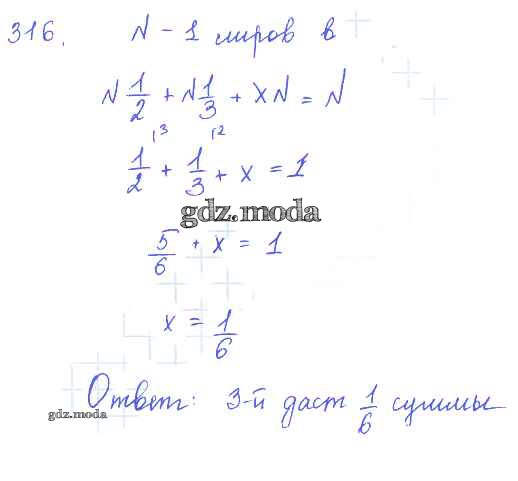 316. N - 1 миров в
N 1/2 + N 1/3 + xN = N
1/2 + 1/3 + x = 1
gdz.moda
5/6 + x = 1
x = 1/6
Ответ: 3-й даст 1/6 суммы
gdz.moda